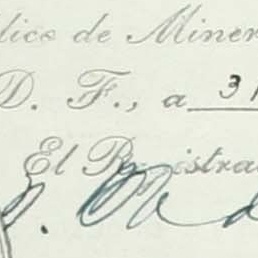 lico de Miner
D. F., a 31
El Registra